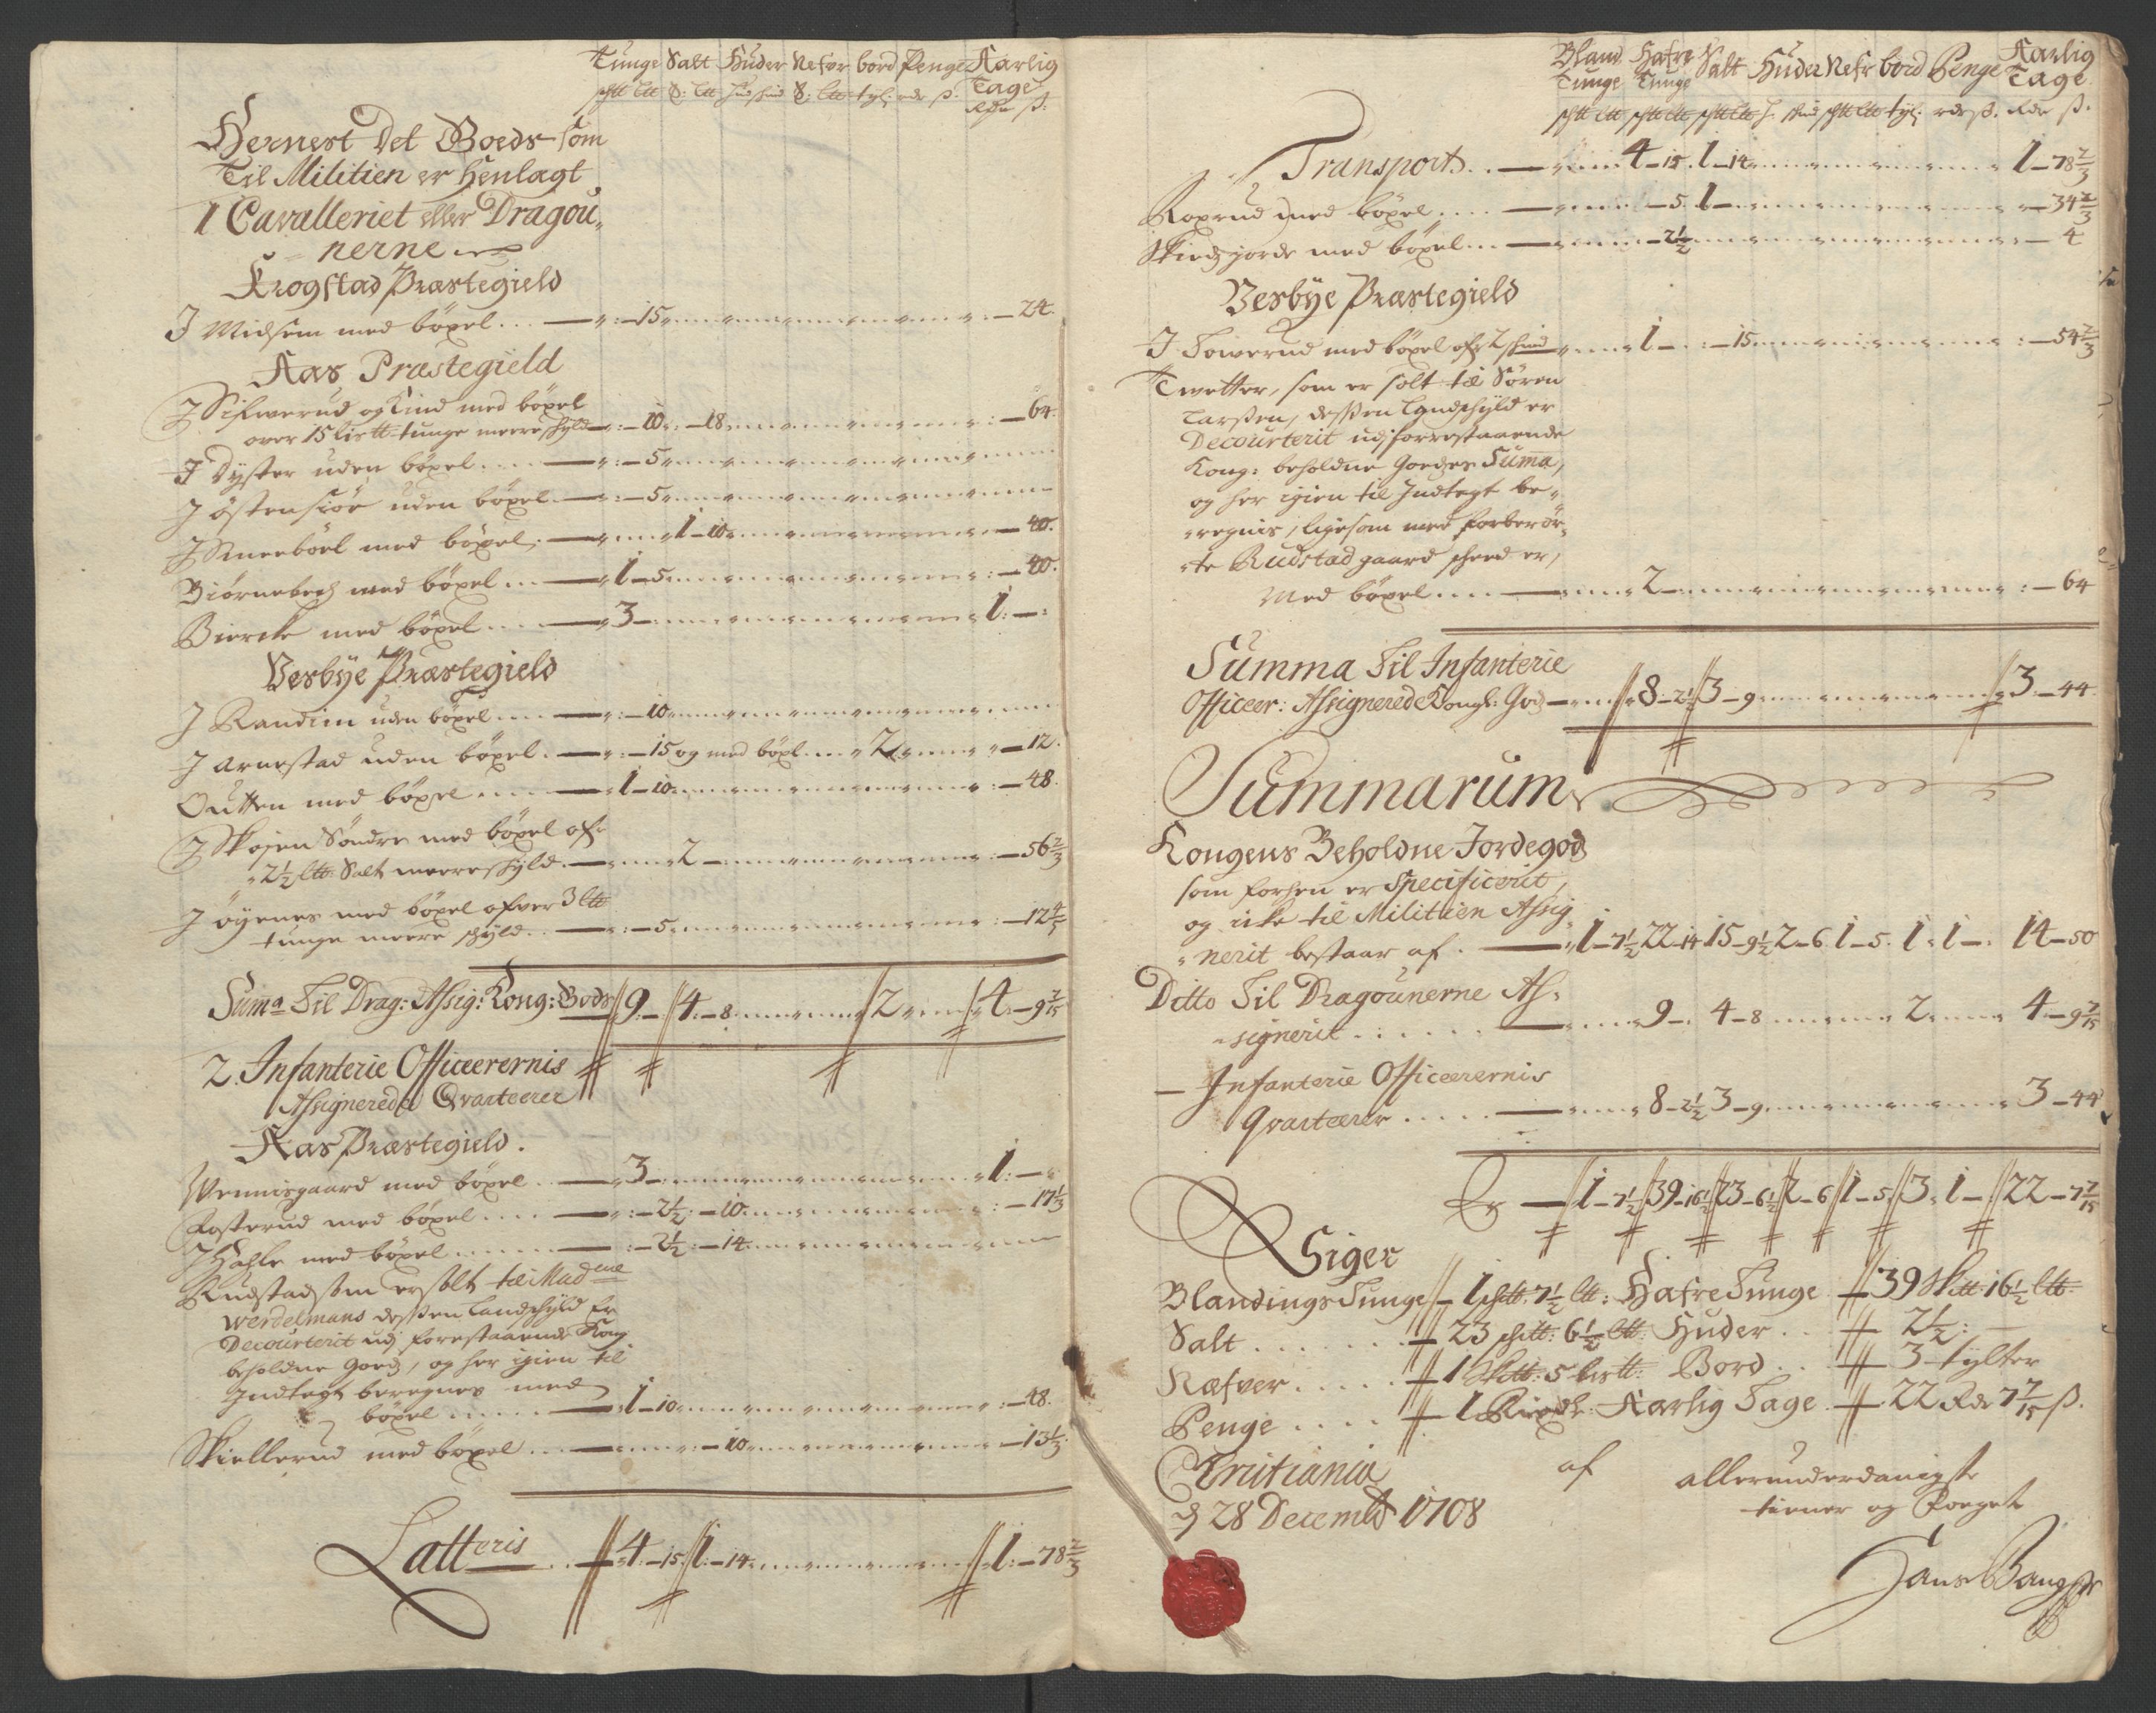 Tunge Salt Huder Nefver bord Penge Aarlig
Tage
Hernest Det Goeds som
Til Militien er Henlagt
1 Cavalleriet eller Dragou„
nerne
Krogstad Præstegield
J Midsem med böxel .... — 15 — 24.
Aas Præstegield
J Sifwerud og Kind med böxel
over 15 lis℔ tunge meere schyld — 10 — 18 — 64.
J Dyster uden böxel .... — 5
J östensiör uden böxel — 5
J Smeeböel med böxel — 1 — 10 — 40.
Biörnebech med böxel ... — 1 — 5 — 40.
Biercke med böxel ... — 3 — 1 : — :
Vesbye Præstegield
J Randim uden böxel .... — 10
J Arnestad uden böxel . — 15 og med böxl .... 2 — 12.
Outten med böxel .... — 1 — 10 — 48.
J Skojen Söndre med böxel ofr
2½ l℔ Salt meere schyld — 2 — 56⅔
J öyenes med böxel ofver 3 l℔
tunge meere schyld .. — 5 — 12⅘
Suma Til Drag: Assig: Kong: Gods 9 — 4 — 8 — 2 — 4 — 9 7/15
2. Infanterie Officeerernis
Assignerede Qvarteerer
Aas Præstegield.
Wennisgaard med böxel .. — 3 — 1 : —
Rosterud med böxel .... — 2½ — 10 — 17⅓
J Hahle med böxel ...... — 2½ — 14
Rudstad som er solt til Mad me
Werdelmans dessen Landschyld er
Decourterit udj forestaaende Kong
beholdne Goedz, og her igien til
Indtegt beregnes med
böxel ...... — 1 — 10 — 48.
Skiellerud med böxel .. — 10 — 13⅓
Latteris .. 4 — 15 1 — 14 — 1 : — 78⅔
Bland Hafre Salt Huder Nefr bord Penge Aarlig
Tunge Tunge Tage
Transport .. — 4 — 15 . 1 — 14 — 1 — 78⅔
Roxrud med böxel .... — 5 . 1 — 34⅔
Skiedzjorde med böxel ... — 2½ — 4
Vesbye Præstegield
J Towerud med böxel ofr 2 skind — 1 — 15 — 54⅔
Twetter, som er solt til Sören
Larssen, dessen Landschyld er
Decourterit udj forrestaaende
Kong: beholdne Goedzes Suma,
og her igien til Indtegt be„
„regnis, ligesom med forberör„
„te Rudstad gaard scheed er,
Med böxel .... — 2 — 64
Summa Til Infanterie
Officeer: Assignerede Kongl: Godz — 8 — 2½ 3 — 9 — 3 — 44
Summarum
Kongens Beholdne Jordegodz
som forhen er Specificerit,
og icke til Militien Assig„
„nerit bestaar af . — 1 — 7½ 22 — 14 15 — 9½ 2 — 6 1 — 5 . 1 . 1 — . 14 — 50
Ditto Til Dragounerne As„
„signerit ...... — 9 — . 4 — 8 — 2 — 4 — 9 7/15
— Infanterie Officeerernis
Qvarteerer ..... — 8 — 2½ 3 — 9 — 3 — 44
Er — 1 — 7½ 39 — 16½ 23 — 6½ 2 — 6 1 — 5 3 . 1 — 22 — 7 7/15
Siger
Blandings Tunge — 1 sch℔ 7½ l℔: Hafre Tunge — 39 Sk℔ 16½ l℔
Salt ...... — 23 sch℔: 6½ l℔: Huder .. — 2½ : —
Næfver ..... — 1 Sk℔: 5 lis℔: Bord .. — 3 tylter
Penge .... — 1 Rixdr: Aarlig Tage — 22 Rdr 7 7/15 ß.
Cristiania
d 28 Decembr 1708
af allerunderdanigste
tiener og Foeget
Hans Bangsz